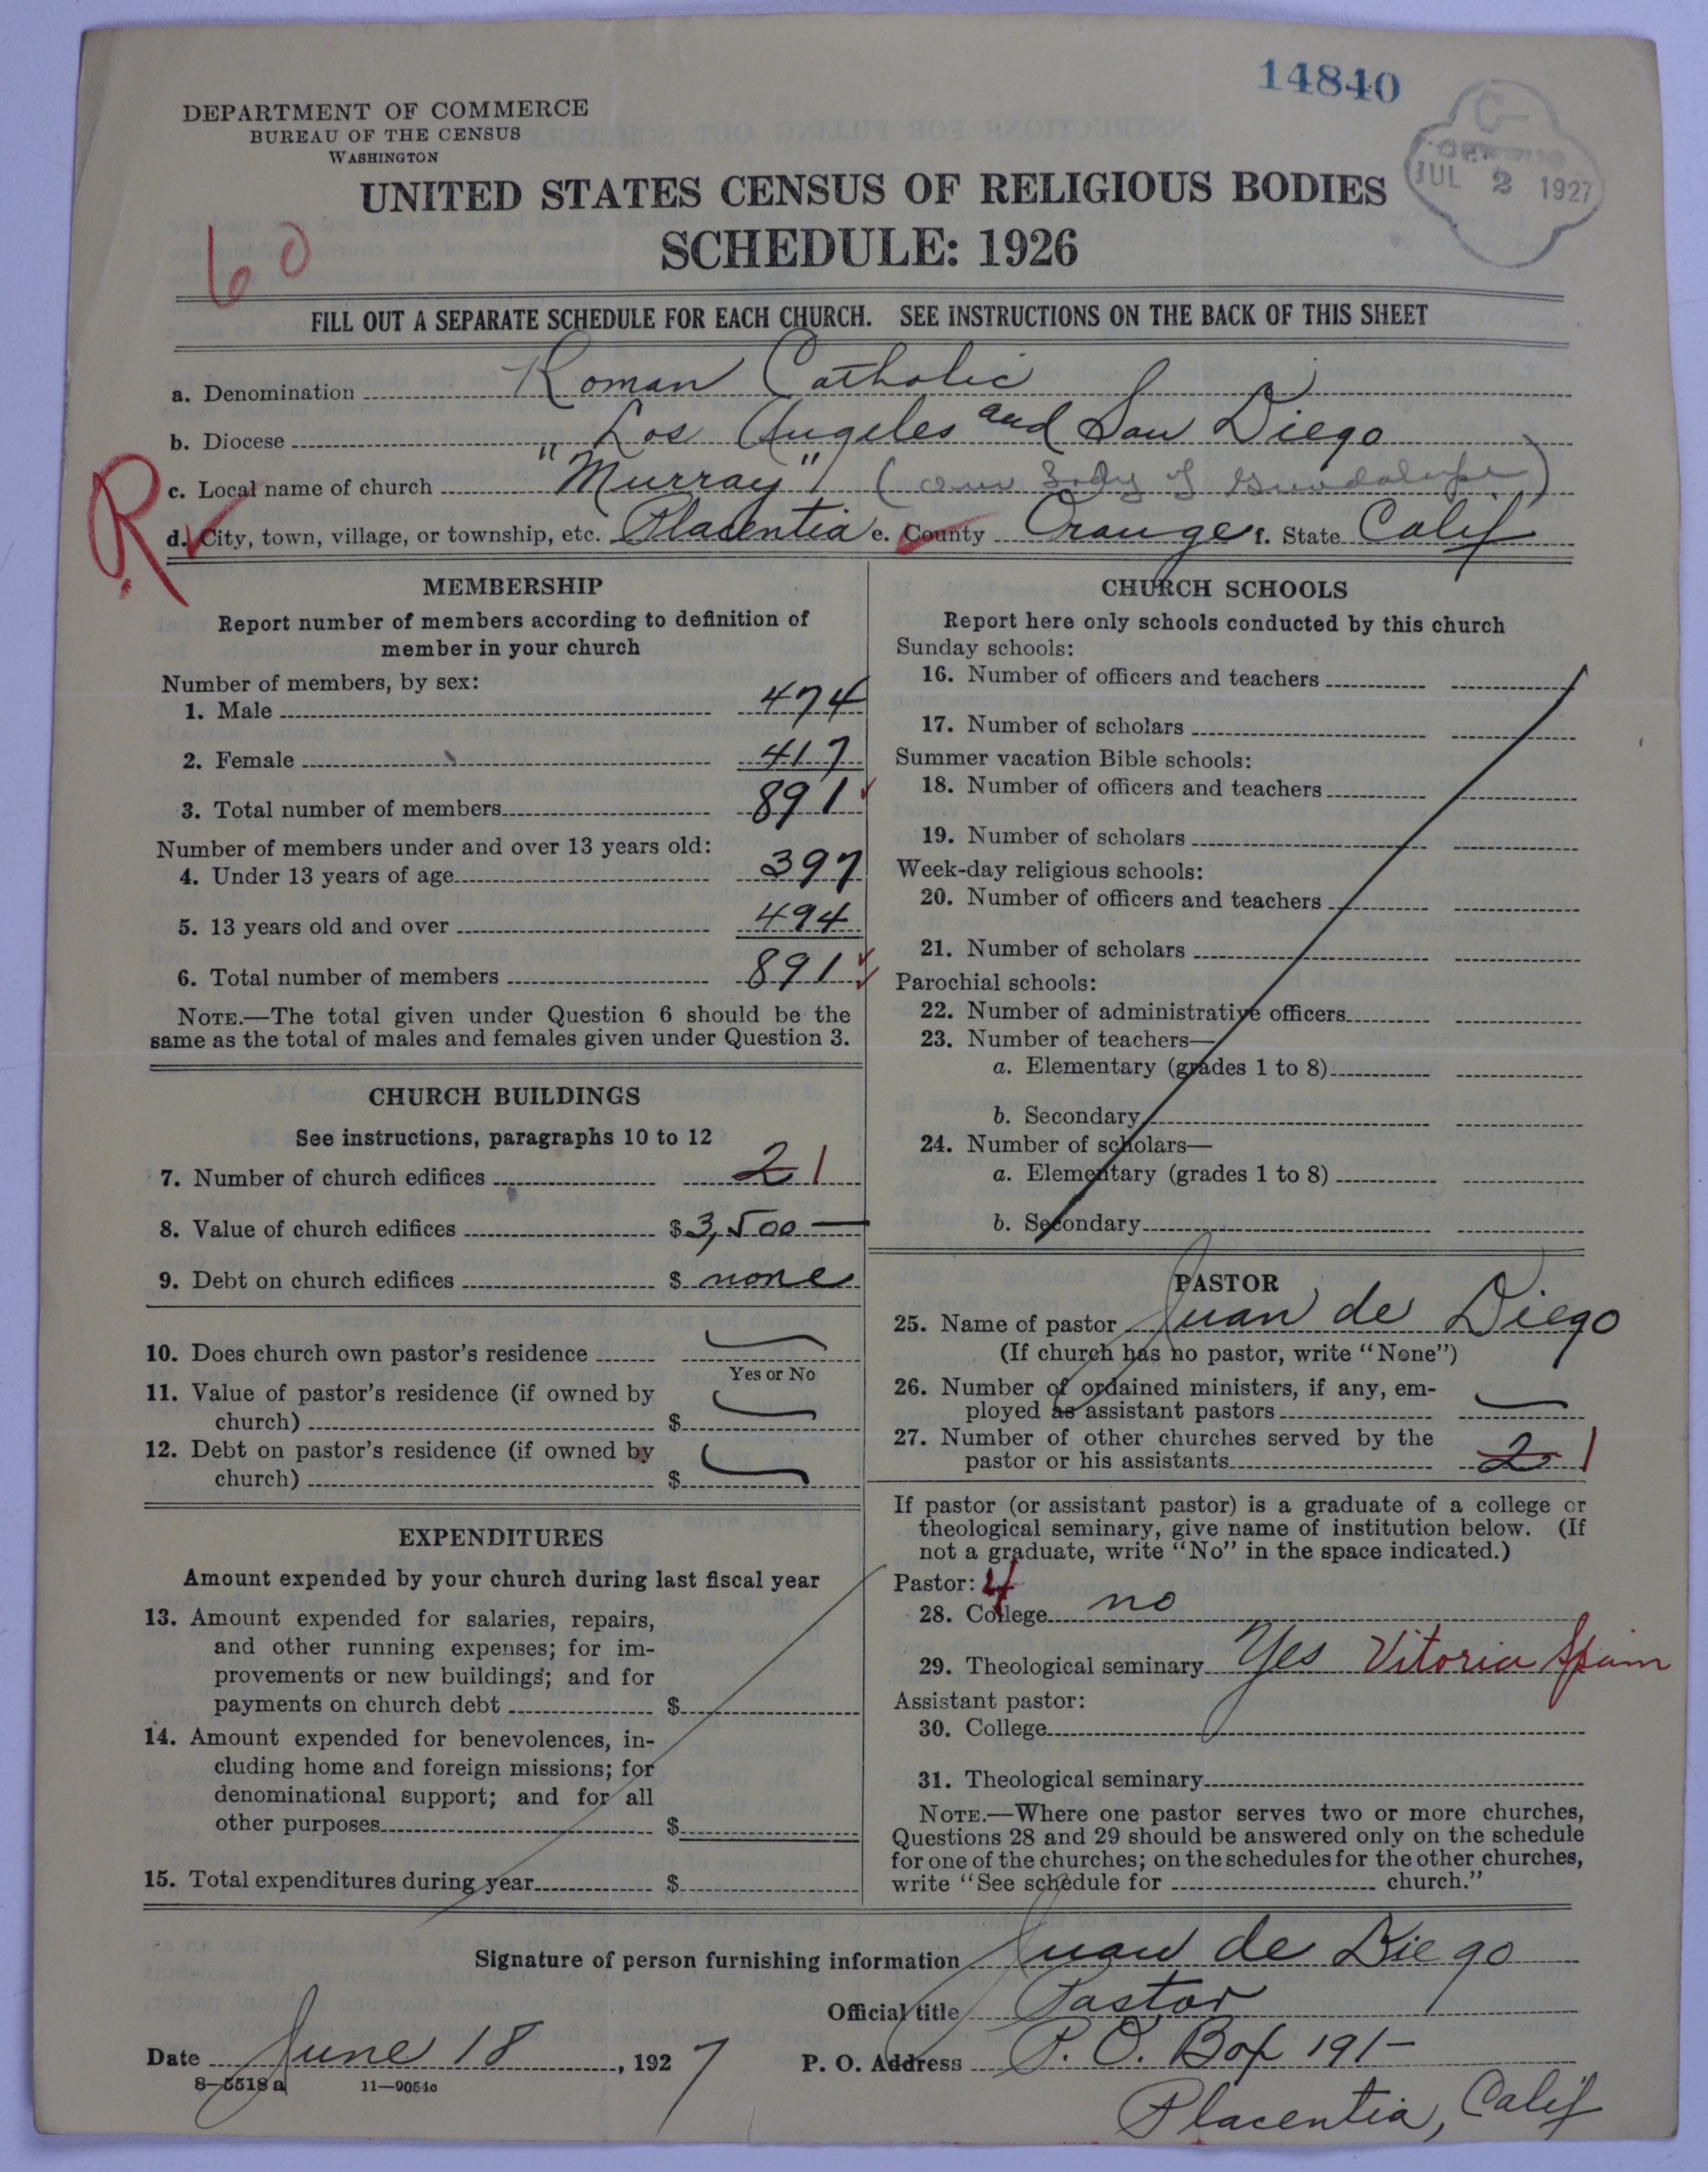 14840
DEPARTMENT OF COMMERCE
BUREAU OF THE CENSUS
WASHINGTON
C
JUL 2 1927
UNITED STATES CENSUS OF RELIGIOUS BODIES
SCHEDULE: 1926
60
FILL OUT A SEPARATE SCHEDULE FOR EACH CHURCH. SEE INSTRUCTIONS ON THE BACK OF THIS SHEET
a. Denomination Roman Catholic
b. Diocese Los Angeles and San Diego
c. Local name of church "Murray" (Our Lady of Guadalupe)
R
d. City, town, village, or township, etc. Placentia e. County Orange f. State Calif
MEMBERSHIP
Report number of members according to definition of
member in your church
Number of members, by sex:
1. Male 474
2. Female 417
3. Total number of members 891
Number of members under and over 13 years old:
4. Under 13 years of age 397
5. 13 years old and over 494
6. Total number of members 891
NOTE.—The total given under Question 6 should be the
same as the total of males and females given under Question 3.
CHURCH BUILDINGS
See instructions, paragraphs 10 to 12
7. Number of church edifices 2 1
8. Value of church edifices $3,500—
9. Debt on church edifices $ none
10. Does church own pastor's residence —
Yes or No
11. Value of pastor's residence (if owned by
church) $ —
12. Debt on pastor's residence (if owned by
church) $ —
EXPENDITURES
Amount expended by your church during last fiscal year
13. Amount expended for salaries, repairs,
and other running expenses; for im-
provements or new buildings; and for
payments on church debt $
14. Amount expended for benevolences, in-
cluding home and foreign missions; for
denominational support; and for all
other purposes $
15. Total expenditures during year $
CHURCH SCHOOLS
Report here only schools conducted by this church
Sunday schools:
16. Number of officers and teachers
17. Number of scholars
Summer vacation Bible schools:
18. Number of officers and teachers
19. Number of scholars
Week-day religious schools:
20. Number of officers and teachers
21. Number of scholars
Parochial schools:
22. Number of administrative officers
23. Number of teachers—
a. Elementary (grades 1 to 8)
b. Secondary
24. Number of scholars—
a. Elementary (grades 1 to 8)
b. Secondary
PASTOR
25. Name of pastor Juan de Diego
(If church has no pastor, write "None")
26. Number of ordained ministers, if any, em-
ployed as assistant pastors —
27. Number of other churches served by the
pastor or his assistants 2 1
If pastor (or assistant pastor) is a graduate of a college or
theological seminary, give name of institution below. (If
not a graduate, write "No" in the space indicated.)
Pastor: 4
28. College no
29. Theological seminary Yes Vitoria Spain
Assistant pastor:
30. College
31. Theological seminary
NOTE.—Where one pastor serves two or more churches,
Questions 28 and 29 should be answered only on the schedule
for one of the churches; on the schedules for the other churches,
write "See schedule for church."
Signature of person furnishing information Juan de Diego
Official title Pastor
Date June 18, 1927 P. O. Address P. O. Box 191-
8—5518 a 11—9054c
Placentia, Calif